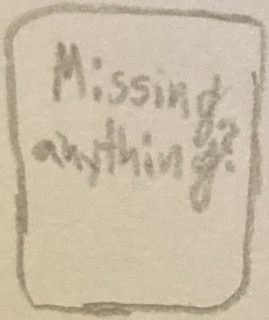 Missing
anything?